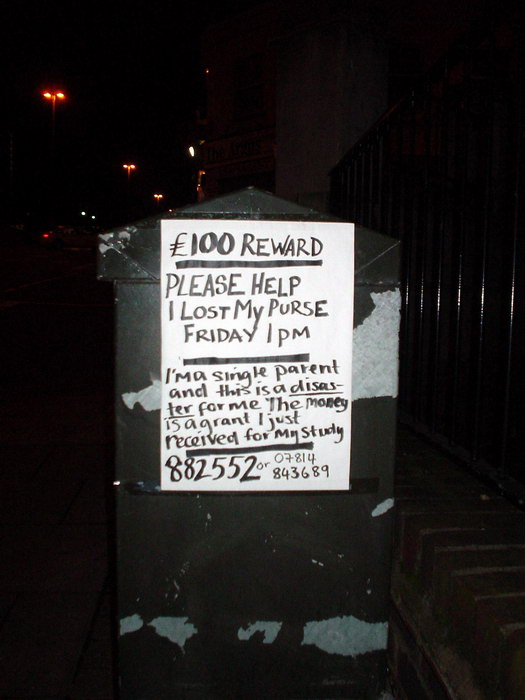 £100 REWARD
PLEASE HELP
I LOST My PURSE
FRIDAY 1PM
I'm a single parent
and this is a disas-
ter for me The money
is a grant I just
received for my study
882552 or 07814
843689